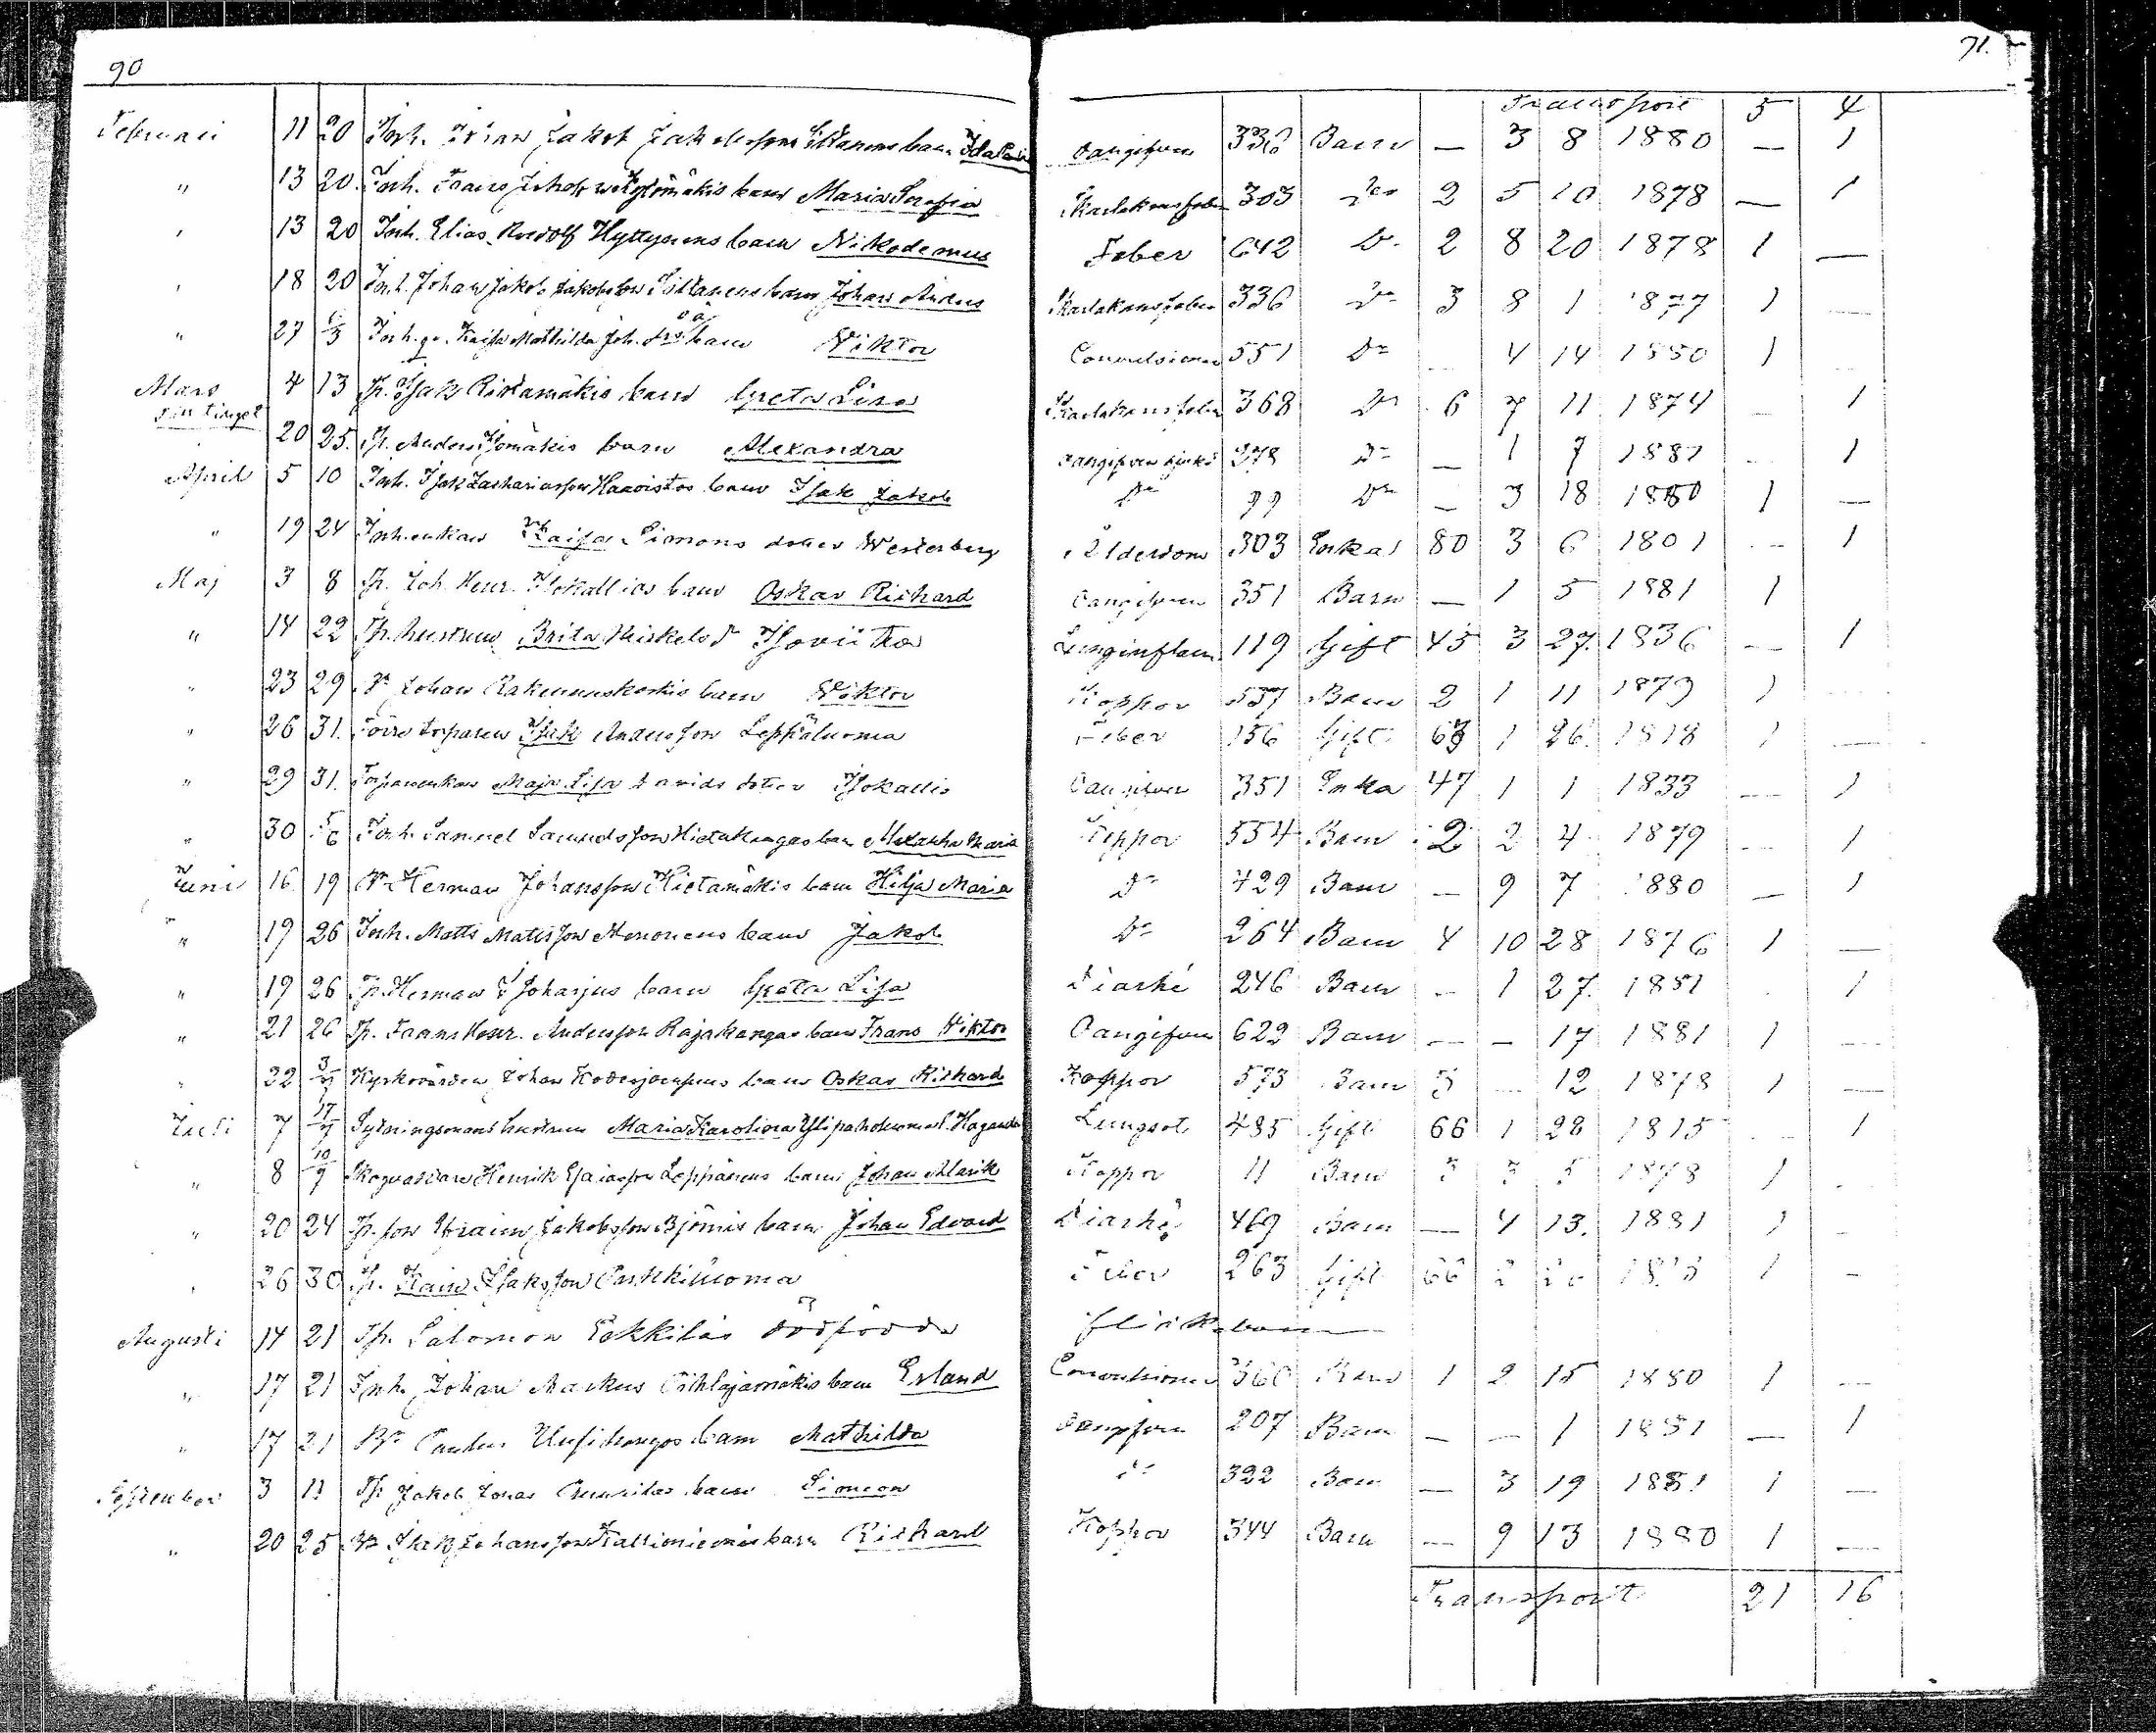 90
71.
Transport 5 4
Februari 11 20 Inh. Johan Jakob Jakobsson barn oangifven 336 Barn — 3 8 1880 — 1
" 13 20. Inh. Frans barn Maria Serafia Skarlakansfeber 303 Do 2 5 10 1878 — 1
" 13 20 Inh. Elias Rudolf Hyttynens barn Nikodemus Feber 642 Do 2 8 20 1878 1 —
" 18 20 Inh. Johan Jakob Jakobsson barn Johan Anders Skarlakansfeber 336 Do 3 8 1 1877 1 —
" 27 6/3 Inh. Kajsa Mathilda Joh. barn Viktor Convulsioner 551 Do — 4 14 1880 1
Mars 4 13 Tp. Isak Ristamäkis barn Greta Lisa Skarlakansfeber 368 Do 6 7 11 1874 — 1
20 25. Tp. Anders barn Alexandra oangifven 278 Do — 1 7 1881 — 1
April 5 10 Inh. Isak Zachariasson Haavistos barn Isak Jakob Do 99 Do — 3 18 1880 1 —
" 19 24 Inh.enkan Kaisa Simons dotter Westerberg Ålderdom 303 Enka 80 3 6 1801 — 1
Maj 3 8 Tp. Joh. Henr. Isokallios barn Oskar Richard oangifven 351 Barn — 1 5 1881 1
" 14 22 Tp. hustrun Brita Lunginflam. 119 Gift 45 3 27. 1836 — 1
" 23 29 Do Johan Rakennuskoskis barn Viktor Koppor 557 Barn 2 1 11 1879 1
" 26 31. Förre torparen Isak Andersson Leppäluoma Feber 156 Gift 63 1 26 1818 1
" 29 31. Torpareenkan Maja Lisa Davids dotter Isokallio Oangifven 351 Enka 47 1 1 1833 — 1
" 30 5/6 Inh. Samuel Hietakangas barn Maria Koppor 554 Barn 2 2 4 1879 — 1
Juni 16 19 Do Herman Johansson Hietamäkis barn Hilja Maria Do 429 Barn — 9 7 1880 — 1
" 19 26 Inh. Matts Mattsson barn Jakob Do 264 Barn 4 10 28 1876 1 —
" 19 26 Tp. Herman Isoharjus barn Greta Lisa Diarhé 246 Barn — 1 27. 1881 1
" 21 26 Tp. Frans Henr. Andersson Rajakangas barn Frans Viktor Oangifven 622 Barn — — 17 1881 1 —
" 22 3/7 Kyrkovärden Johan barn Oskar Richard Koppor 573 Barn 3 — 12 1878 1 —
Juli 7 17/7 Sytningsmans hustrun Maria Karolina Lungsot 485 Gift 66 1 28 1815 1
" 8 10/7 Skogvaktare Henrik Esaiasson Leppänens barn Johan Alarik Koppor 11 Barn 3 3 5 1878 1
" 20 24 Tp. son Efraim Jakobsson barn Johan Edvard Diarhé 469 Barn — 4 13. 1881 1 —
" 26 30 Tp. Isaksson Feber 263 Gift 66 1 —
Augusti 14 21 Tp. Salomon Kokkilas dödfödda flickebarn
" 17 21 Inh. Johan Markus Pihlajamäkis barn Erland Convulsioner 360 Barn 1 2 15 1880 1 —
" 17 21 Do Paulus Uusikangas barn Mathilda oangifven 207 Barn — — 1 1881 — 1
September 3 11 Tp. Jakob Jonas barn Simeon Do 322 Barn — 3 19 1881 1 —
" 20 25 Isak Johansson Kallioniemis barn Richard Koppor 344 Barn — 9 13 1880 1 —
Transport 21 16